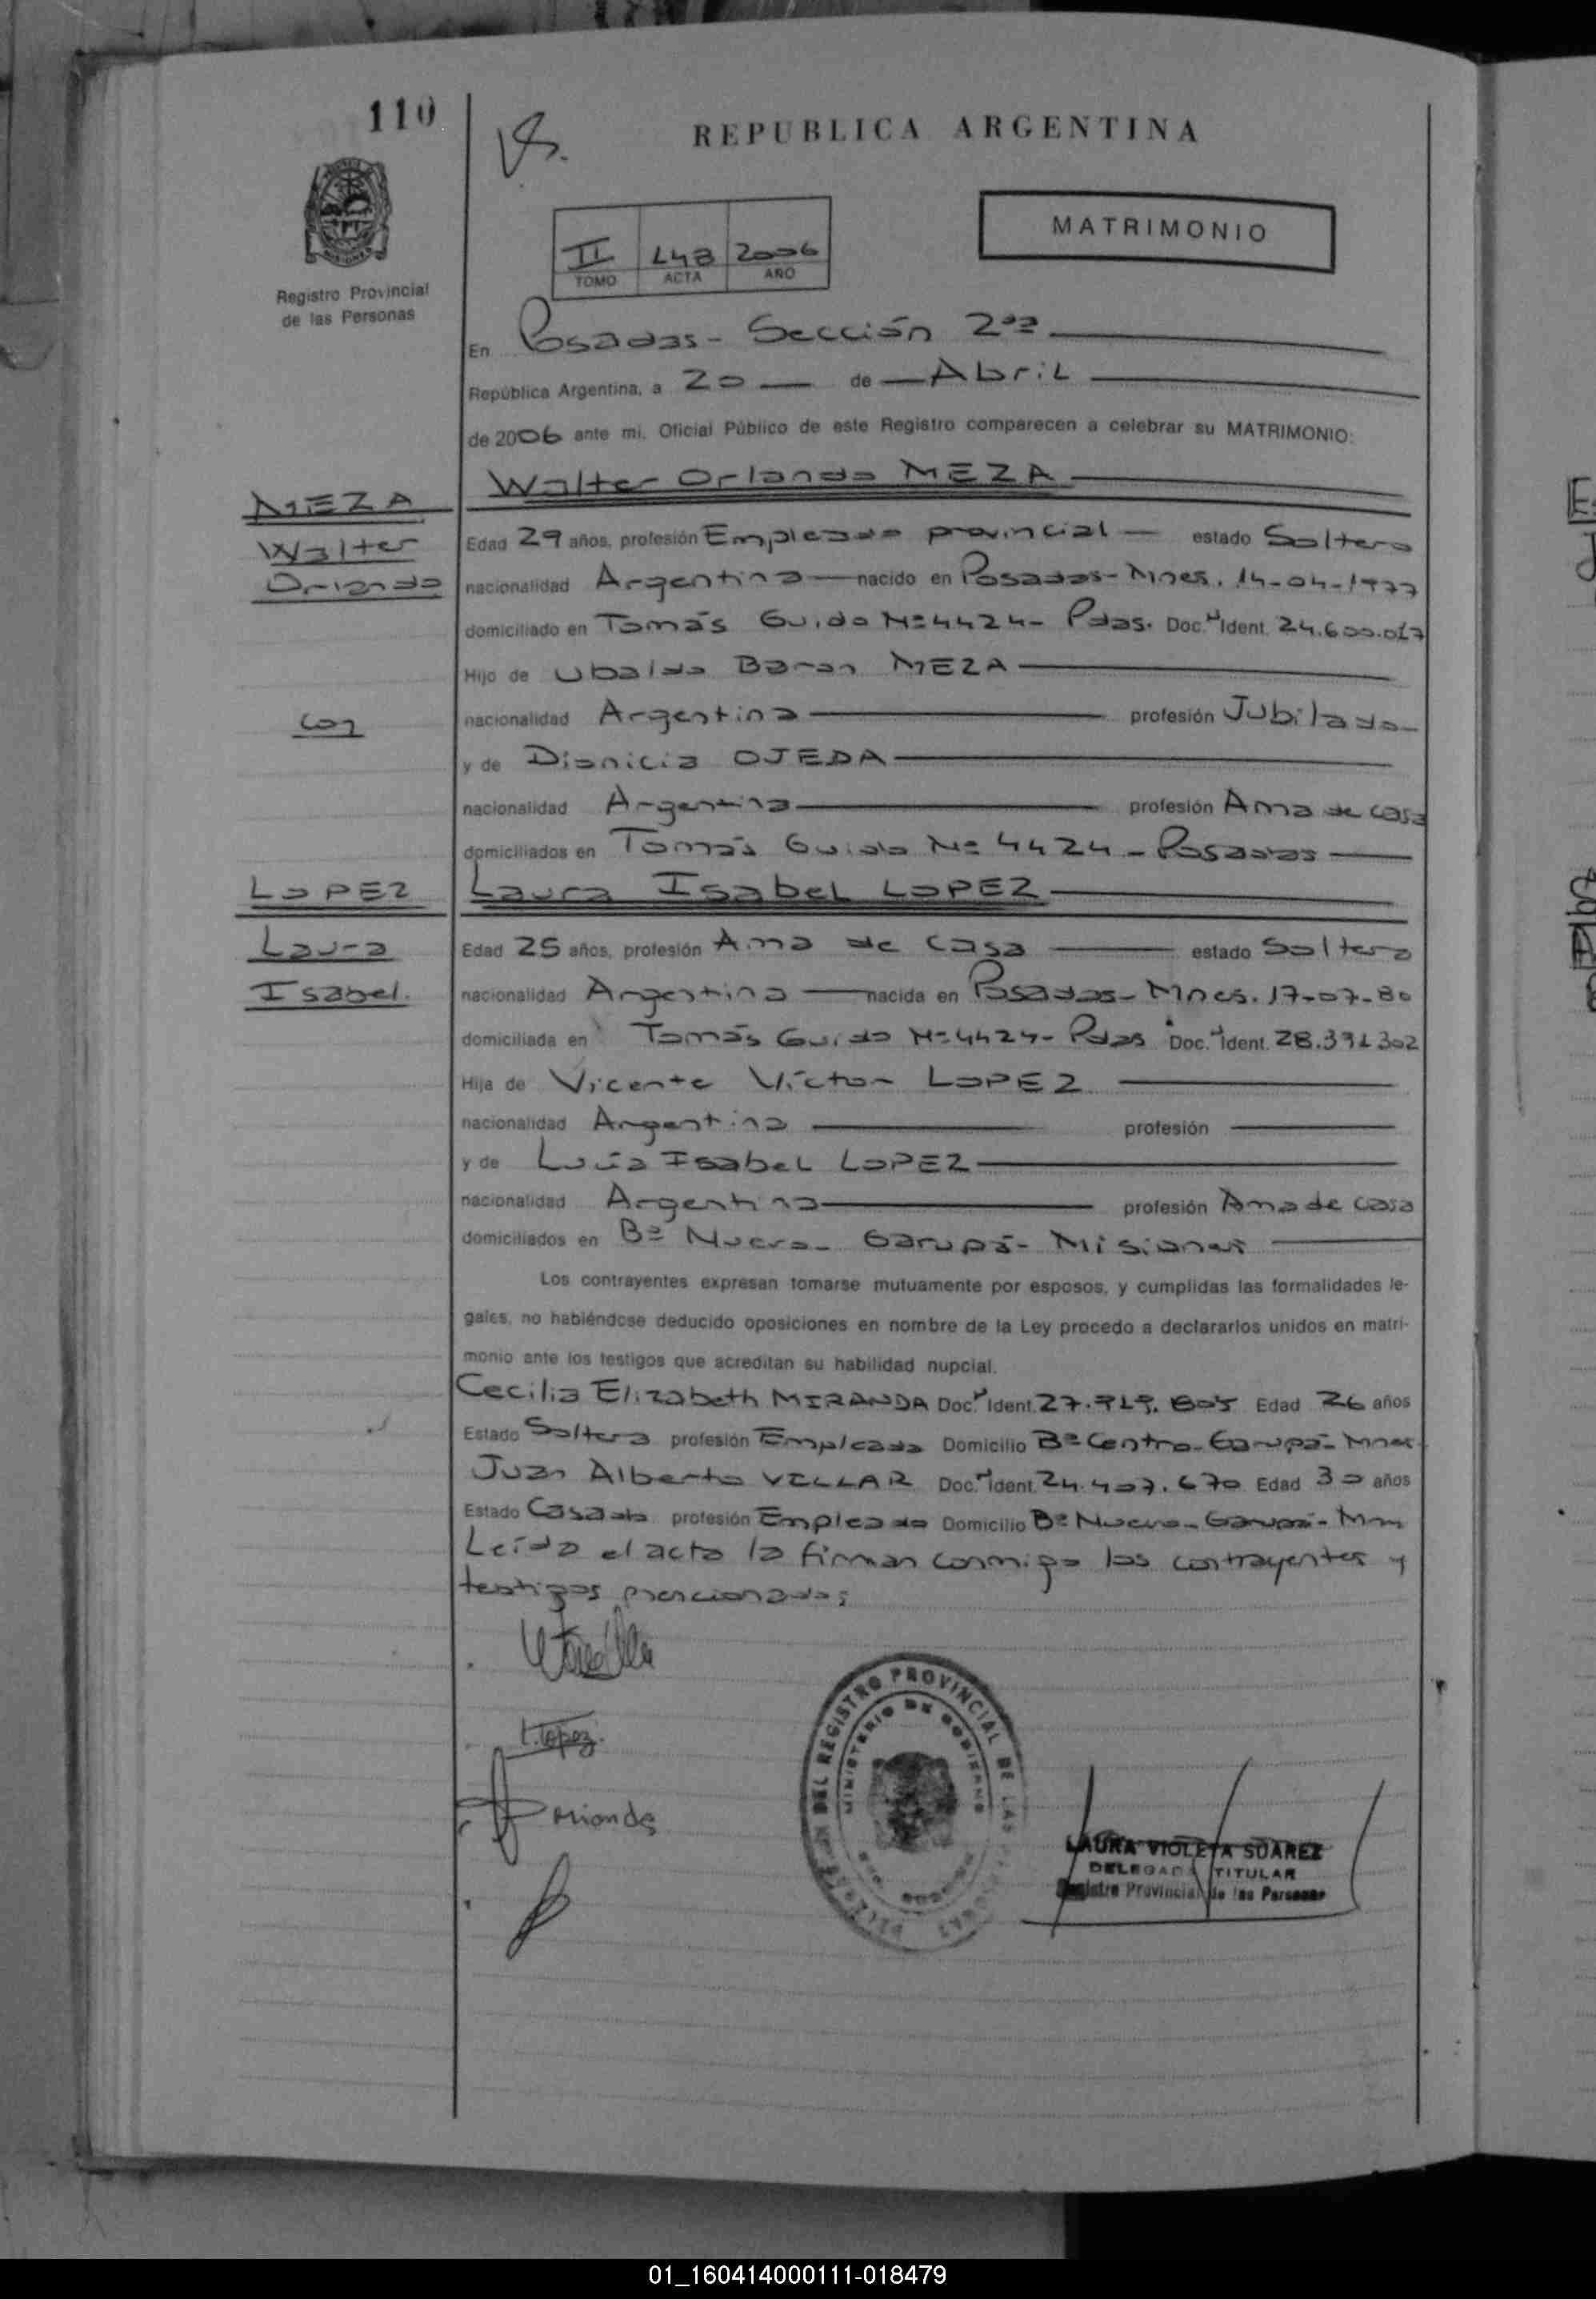 110
REPUBLICA ARGENTINA
MATRIMONIO
II 148 2006
TOMO ACTA AÑO
Registro Provincial
de las Personas
En Posadas - Sección 2da
República Argentina, a 20 de Abril
de 2006 ante mi, Oficial Público de este Registro comparecen a celebrar su MATRIMONIO:
MEZA
Walter
Orlando
con
LOPEZ
Laura
Isabel.
Walter Orlando MEZA
Edad 29 años, profesión Empleado provincial estado Soltero
nacionalidad Argentina nacido en Posadas - Mnes. 14-04-1977
domiciliado en Tomás Guido Nº 4424 - Pdas. Doc. Ident. 24.600.017
Hijo de Ubaldo Baron MEZA
nacionalidad Argentina profesión Jubilado
y de Dionicia OJEDA
nacionalidad Argentina profesión Ama de casa
domiciliados en Tomás Guido Nº 4424 - Posadas
Laura Isabel LOPEZ
Edad 25 años, profesión Ama de casa estado Soltera
nacionalidad Argentina nacida en Posadas - Mnes. 17-07-80
domiciliada en Tomás Guido Nº 4424 - Pdas Doc. Ident. 28.391302
Hija de Vicente Víctor LOPEZ
nacionalidad Argentina profesión
y de Lucía Isabel LOPEZ
nacionalidad Argentina profesión Ama de casa
domiciliados en Bº Nuevo - Garupá - Misiones
Los contrayentes expresan tomarse mutuamente por esposos, y cumplidas las formalidades le-
gales, no habiéndose deducido oposiciones en nombre de la Ley procedo a declararlos unidos en matri-
monio ante los testigos que acreditan su habilidad nupcial.
Cecilia Elizabeth MIRANDA Doc. Ident. 27. 805 Edad 26 años
Estado Soltera profesión Empleada Domicilio Bº Centro - Garupá - Mnes
Juan Alberto VILLAR Doc. Ident. 24.407.670 Edad 30 años
Estado Casado profesión Empleado Domicilio Bº Nuevo - Garupá -
Leída el acta la firman conmigo los contrayentes y
testigos mencionados;
L. Lopez.
DEL REGISTRO PROVINCIAL DE LAS
MINISTERIO DE GOBIERNO
LAURA VIOLETA SUAREZ
DELEGADA TITULAR
Registro Provincial de las Personas
01_160414000111-018479